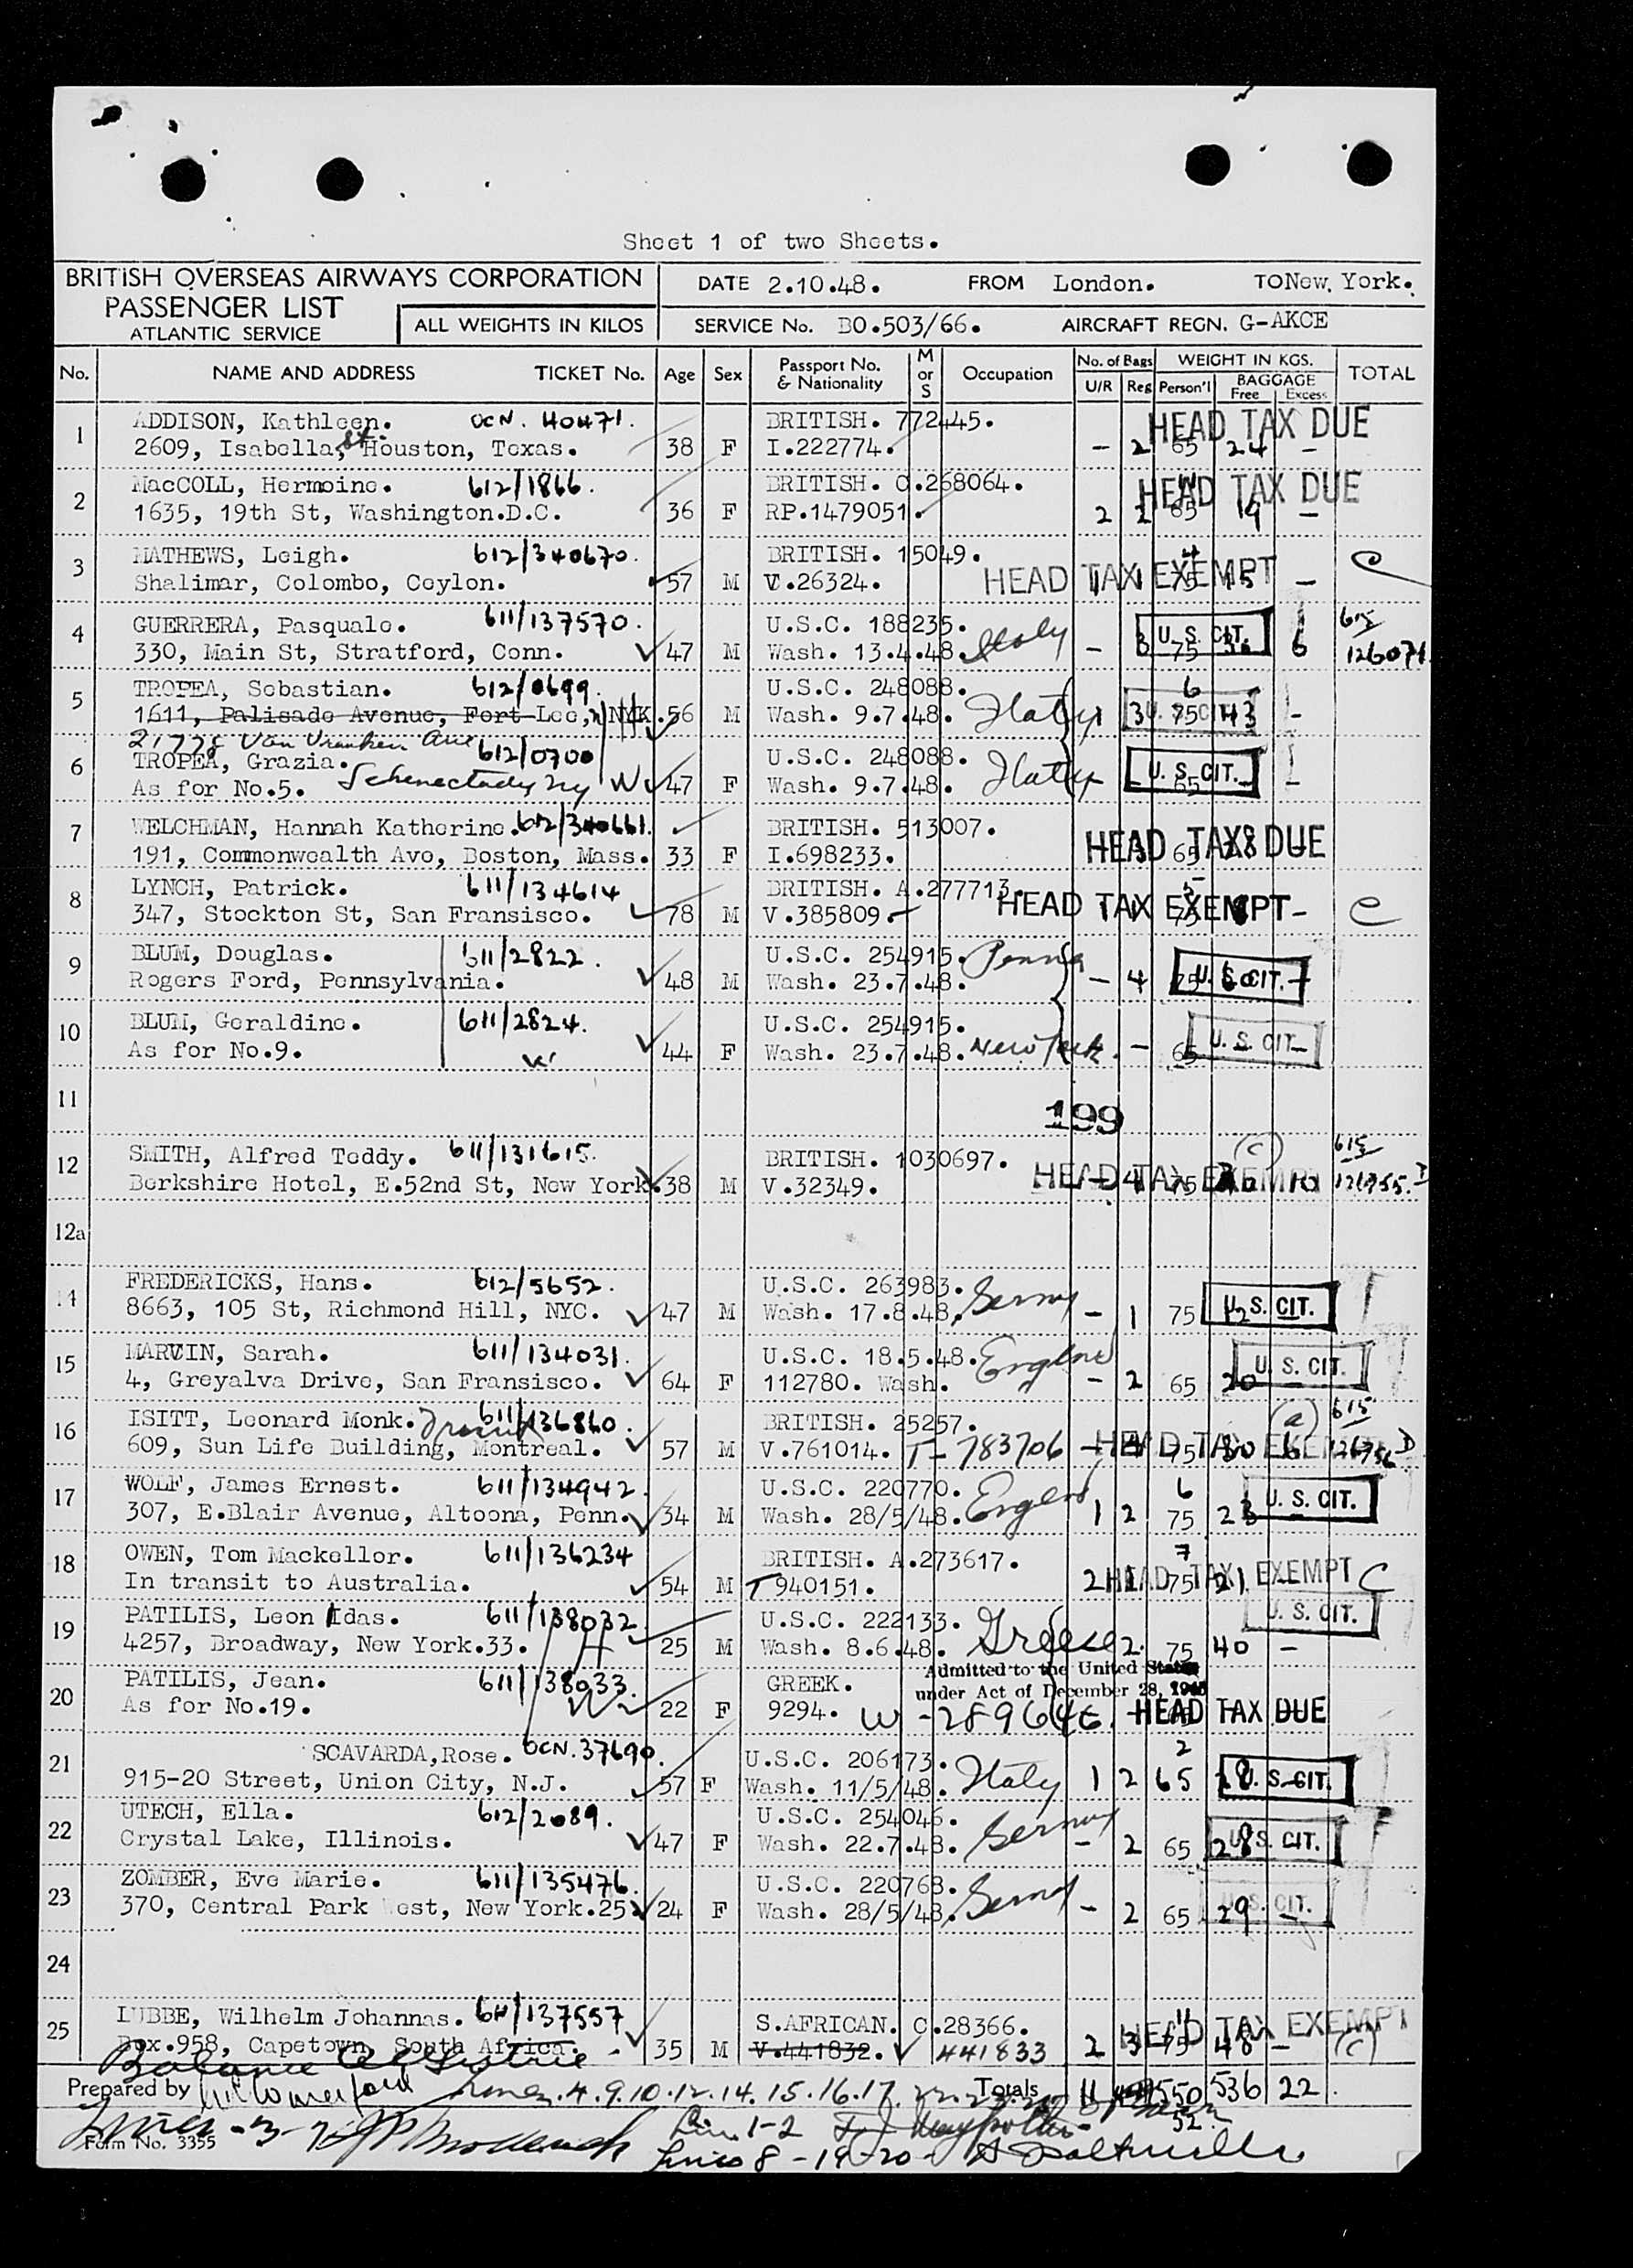 Sheet 1 of two Sheets.
BRITISH OVERSEAS AIRWAYS CORPORATION
PASSENGER LIST
ATLANTIC SERVICE
ALL WEIGHTS IN KILOS
DATE 2.10.48. FROM London. TO New York.
SERVICE No. BO.503/66. AIRCRAFT REGN. G-AKCE
No. NAME AND ADDRESS TICKET No. Age Sex Passport No. & Nationality M or S Occupation No. of Bags U/R Reg WEIGHT IN KGS. Person'l BAGGAGE Free Excess TOTAL
1 ADDISON, Kathleen. OCN. 40471. BRITISH. 772445. HEAD TAX DUE
2609, Isabella, St. Houston, Texas. 38 F I.222774. - 2 65 24 -
2 MacCOLL, Hermoine. 612/1866. BRITISH. C.268064. HEAD TAX DUE
1635, 19th St, Washington.D.C. 36 F RP.1479051. 2 2 65 19 -
3 MATHEWS, Leigh. 612/340670. BRITISH. 15049. 4
Shalimar, Colombo, Ceylon. 57 M V.26324. HEAD TAX EXEMPT 1 1 75 15 - C
4 GUERRERA, Pasquale. 611/137570. U.S.C. 188235. U. S. CIT. 615
330, Main St, Stratford, Conn. 47 M Wash. 13.4.48. Italy - 3 75 6 126071
5 TROPEA, Sebastian. 612/0699. U.S.C. 248088. 6
1611, Palisade Avenue, Fort Lee, NYK. 56 M Wash. 9.7.48. Italy 1 3 75 43 - U. S. CIT.
21778 Van Vranken Ave
6 TROPEA, Grazia. 612/0700 U.S.C. 248088.
As for No.5. Schenectady NY W 47 F Wash. 9.7.48. Italy - - 65 - - U. S. CIT.
7 WELCHMAN, Hannah Katherine. 612/340661. BRITISH. 513007.
191, Commonwealth Ave, Boston, Mass. 33 F I.698233. HEAD TAX DUE 65 28
8 LYNCH, Patrick. 611/134614 BRITISH. A.277713. 5
347, Stockton St, San Fransisco. 78 M V.385809. HEAD TAX EXEMPT 1 1 75 - C
9 BLUM, Douglas. 611/2822. U.S.C. 254915. Penna
Rogers Ford, Pennsylvania. 48 M Wash. 23.7.48. - 4 75 U. S. CIT. -
10 BLUM, Geraldine. 611/2824. U.S.C. 254915.
As for No.9. W 44 F Wash. 23.7.48. New York. - - 65 U. S. CIT.
11
199
12 SMITH, Alfred Teddy. 611/131615. BRITISH. 1030697. (C) 615
Berkshire Hotel, E.52nd St, New York. 38 M V.32349. HEAD TAX EXEMPT - 4 75 10
12a
14 FREDERICKS, Hans. 612/5652. U.S.C. 263983.
8663, 105 St, Richmond Hill, NYC. 47 M Wash. 17.8.48. Germy - 1 75 12 U. S. CIT.
15 MARVIN, Sarah. 611/134031. U.S.C. 18.5.48. England
4, Greyalva Drive, San Fransisco. 64 F 112780. Wash. - 2 65 20 - U. S. CIT.
16 ISITT, Leonard Monk. Transit 611/136860. BRITISH. 25257. (a) 615
609, Sun Life Building, Montreal. 57 M V.761014. T- 783706 - HEAD TAX EXEMPT 75 30 6
17 WOLF, James Ernest. 611/134942. U.S.C. 220770. 6
307, E.Blair Avenue, Altoona, Penn. 34 M Wash. 28/5/48. Engend 1 2 75 23 - U. S. CIT.
18 OWEN, Tom Mackellor. 611/136234 BRITISH. A.273617. 7
In transit to Australia. 54 M T 940151. 2 1 HEAD TAX EXEMPT 75 21 - C
19 PATILIS, Leon Idas. 611/138032 U.S.C. 222133. U. S. CIT.
4257, Broadway, New York.33. H 25 M Wash. 8.6.48. Greece 2. 75 40 -
Admitted to the United States
under Act of December 28, 1945
20 PATILIS, Jean. 611/138033. GREEK.
As for No.19. W 22 F 9294. W - HEAD TAX DUE
21 SCAVARDA, Rose. OCN. 37690. U.S.C. 206173. 2
915-20 Street, Union City, N.J. 57 F Wash. 11/5/48. Italy 1 2 65 28 U. S. CIT.
22 UTECH, Ella. 612/2089. U.S.C. 254046.
Crystal Lake, Illinois. 47 F Wash. 22.7.48. Germny - 2 65 28 U. S. CIT.
23 ZOMBER, Eve Marie. 611/135476. U.S.C. 220768.
370, Central Park West, New York.25 24 F Wash. 28/5/48. Germny - 2 65 29 - U. S. CIT.
24
25 LUBBE, Wilhelm Johannas. 611/137557 S.AFRICAN. C.28366. 11 HEAD TAX EXEMPT
Box.958, Capetown, South Africa. 35 M V.441832. 441833 2 3 75 48 - (C)
Balance
Prepared by Lines. 4. 9. 10. 12. 14. 15. 16. 17. 22. 23. Totals 11 1550 536 22
Lines - 3 - 7 Lin. 1-2 52
Form No. 3355 Lines 8 - 19-20